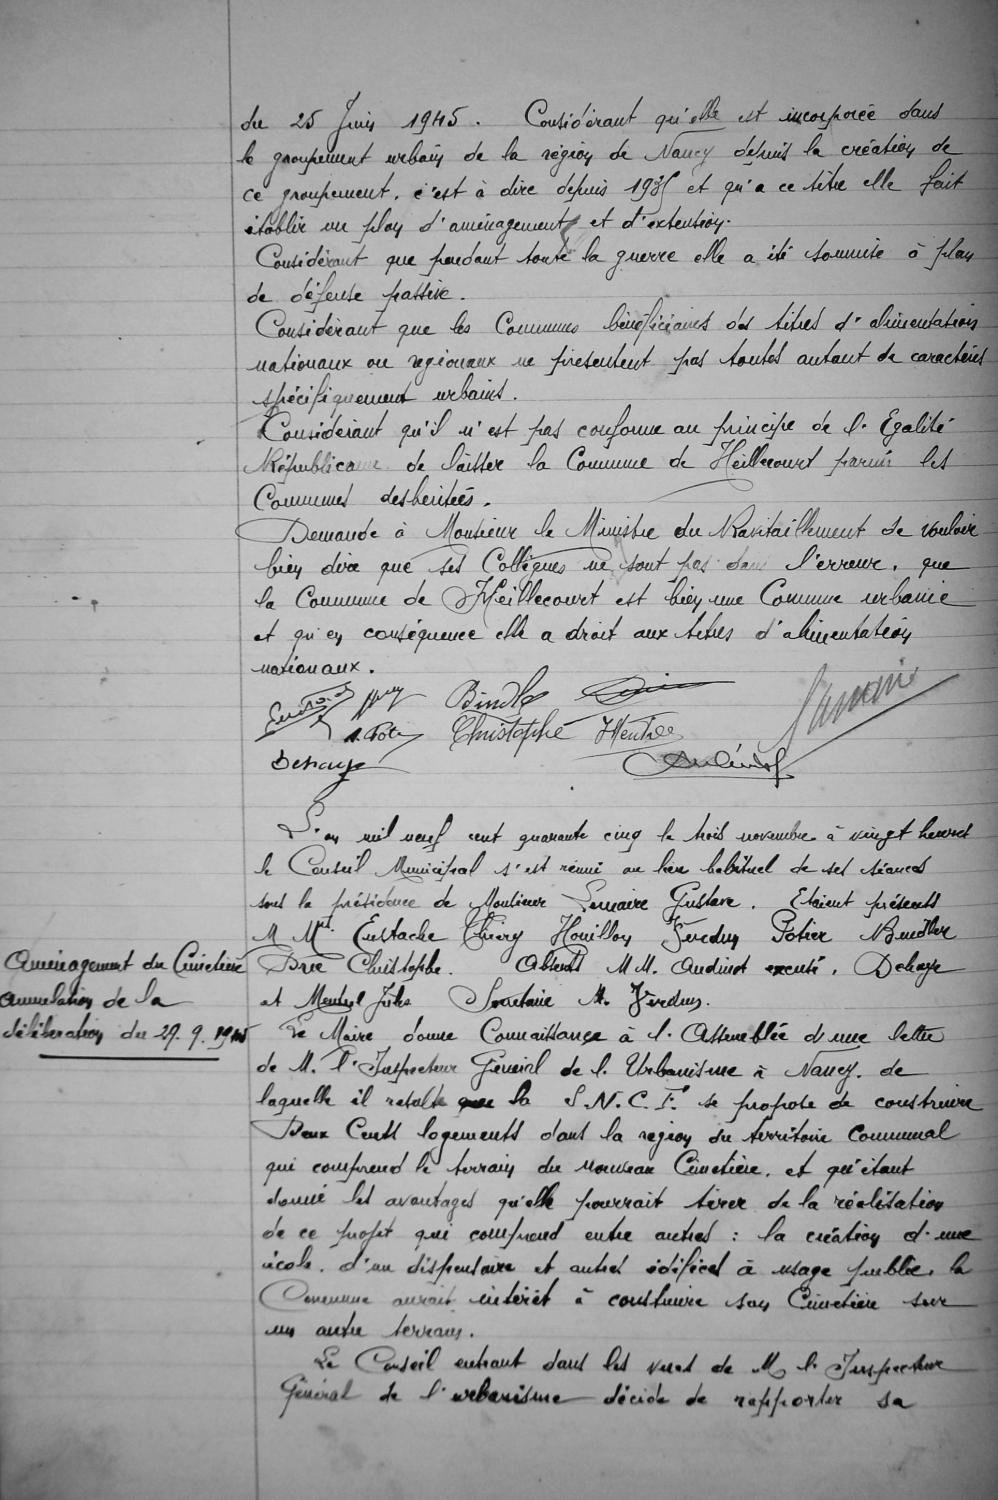 du 25 Juin 1945. Considérant qu'elle est incorporée dans
le groupement urbain de la région de Nancy depuis la création de
ce groupement, c'est à dire depuis 1935 et qu'a ce titre elle fait
établir un plan d'aménagement et d'extention.
Considérant que pendant toute la guerre elle a été soumise à plan
de défense passive.
Considérant que les Communes bénéficiaires des titres d'alimentation
nationaux ou regionaux ne présentent pas toutes autant de caractères
spécifiquement urbains.
Considérant qu'il n'est pas conforme au principe de l'Egalité
Républicaine de laisser la Commune de Heillecourt parmi les
Communes desheritées.
Demande à Monsieur le Ministre du Ravitaillement de vouloir
bien dire que ses Collègues ne sont pas dans l'erreur, que
la Commune de Heillecourt est bien une Commune urbaine
et qu'en conséquence elle a droit aux titres d'alimentation
nationaux.
Bindler
Christophe
Dehaye
L'an mil neuf cent quarante cinq le trois novembre à vingt heures
le Conseil Municipal s'est réuni au lieu habituel de ses séances
sous la présidence de Monsieur Lemaire Gustave. Etaient présents
M Mrs. Eustache Thiéry Houillon Verdun Potier Bindler
Drie Christophe. Absents MM. Audinot excusé, Dehaye
et Mentrel Jules Secrétaire M. Verdun.
Aménagement du Cimetière
Annulation de la
délibération du 29.9.1945
Le Maire donne Connaissance à l'Assemblée d'une lettre
de M. l'Inspecteur Général de l'Urbanisme à Nancy, de
laquelle il résulte que la S.N.C.F. se propose de construire
Deux Cents logements dans la region du territoire Communal
qui comprend le terrain du nouveau Cimetière, et qu'étant
donné les avantages qu'elle pourrait tirer de la réalisation
de ce projet qui comprend entre autres : la création d'une
école, d'un dispensaire et autres édifices à usage public, la
Commune aurait intérêt à construire son Cimetière sur
un autre terrain.
Le Conseil entrant dans les vues de M l'Inspecteur
Général de l'urbanisme décide de rapporter sa